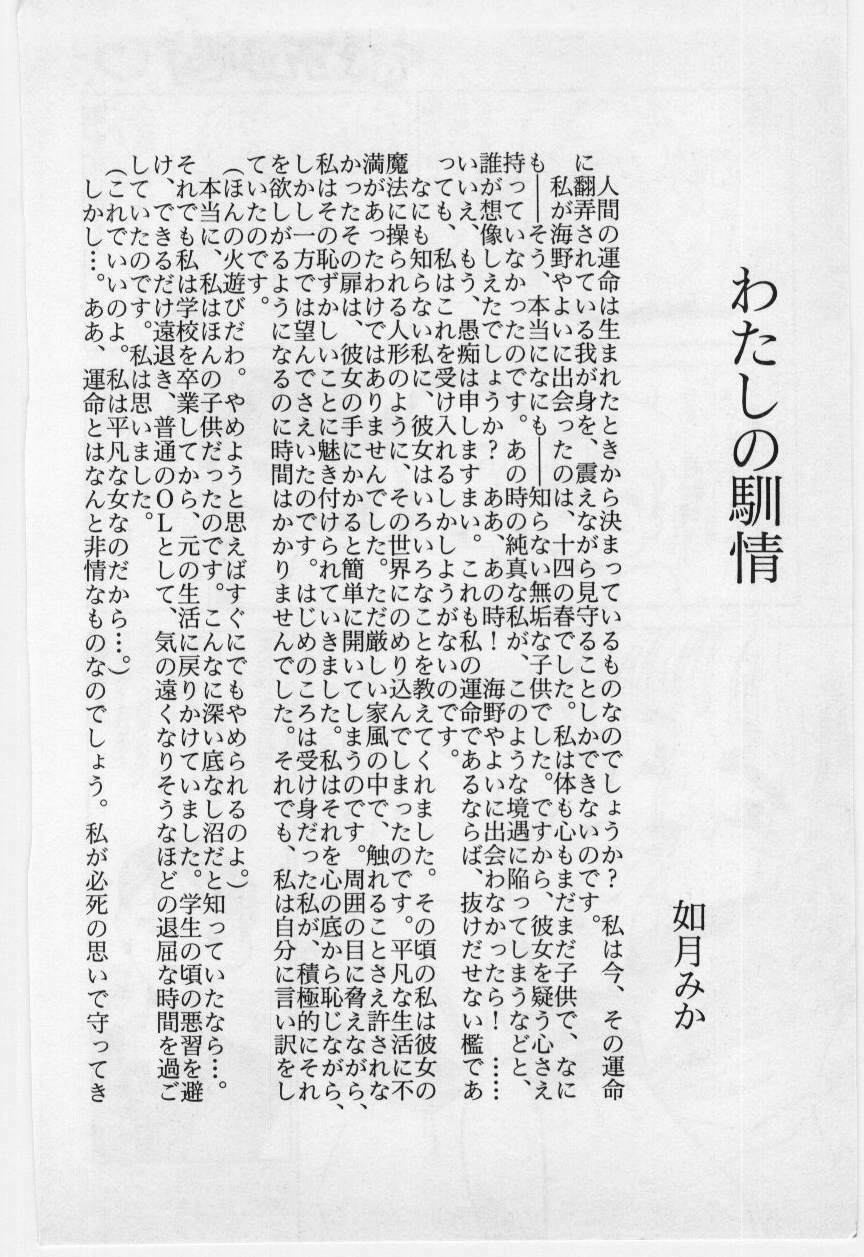 わたしの馴情
如月みか
人間の運命は生まれたときから決まっているものなのでしょうか?　私は今、その運命
に翻弄されている我が身を、震えながら見守ることしかできないのです。
私が海野やよいに出会ったのは、十四の春でした。私は体も心もまだまだ子供で、なに
も――そう、本当になにも――知らない無垢な子供でした。ですから、彼女を疑う心さえ
持っていなかったのです。あの時の純真な私が、このような境遇に陥ってしまうなどと、
誰が想像しえたでしょうか?　ああ、あの時!　海野やよいに出会わなかったら!　……
いいえ、もう、愚痴は申しますまい。これも私の運命であるならば、抜けだせない檻であ
っても、私はこれを受け入れるしかしようがないのです。
なにも知らない私に、彼女はいろいろなことを教えてくれました。その頃の私は彼女の
魔法に操られる人形のように、その世界にのめり込んでしまったのです。平凡な生活に不
満があったわけではありませんでした。ただ厳しい家風の中で、触れることさえ許されな
かったその扉は、彼女の手にかかると簡単に開いてしまうのです。周囲の目に脅えながら、
私はその恥ずかしいことに魅き付けられていきました。私はそれを心の底から恥じながら、
しかし一方では望んでさえいたのです。はじめのころは受け身だった私が、積極的にそれ
を欲しがるようになるのに時間はかかりませんでした。それでも、私は自分に言い訳をし
ていたのです。
(ほんの火遊びだわ。やめようと思えばすぐにでもやめられるのよ。)
本当に、私はほんの子供だったのです。こんなに深い底なし沼だと知っていたなら…。
それでも私は学校を卒業してから、元の生活に戻りかけていました。学生の頃の悪習を避
け、できるだけ遠退き、普通のOLとして、気の遠くなりそうなほどの退屈な時間を過ご
していたのです。私は思いました。
(これでいいのよ。私は平凡な女なのだから…。)
しかし…。ああ、運命とはなんと非情なものなのでしょう。私が必死の思いで守ってき